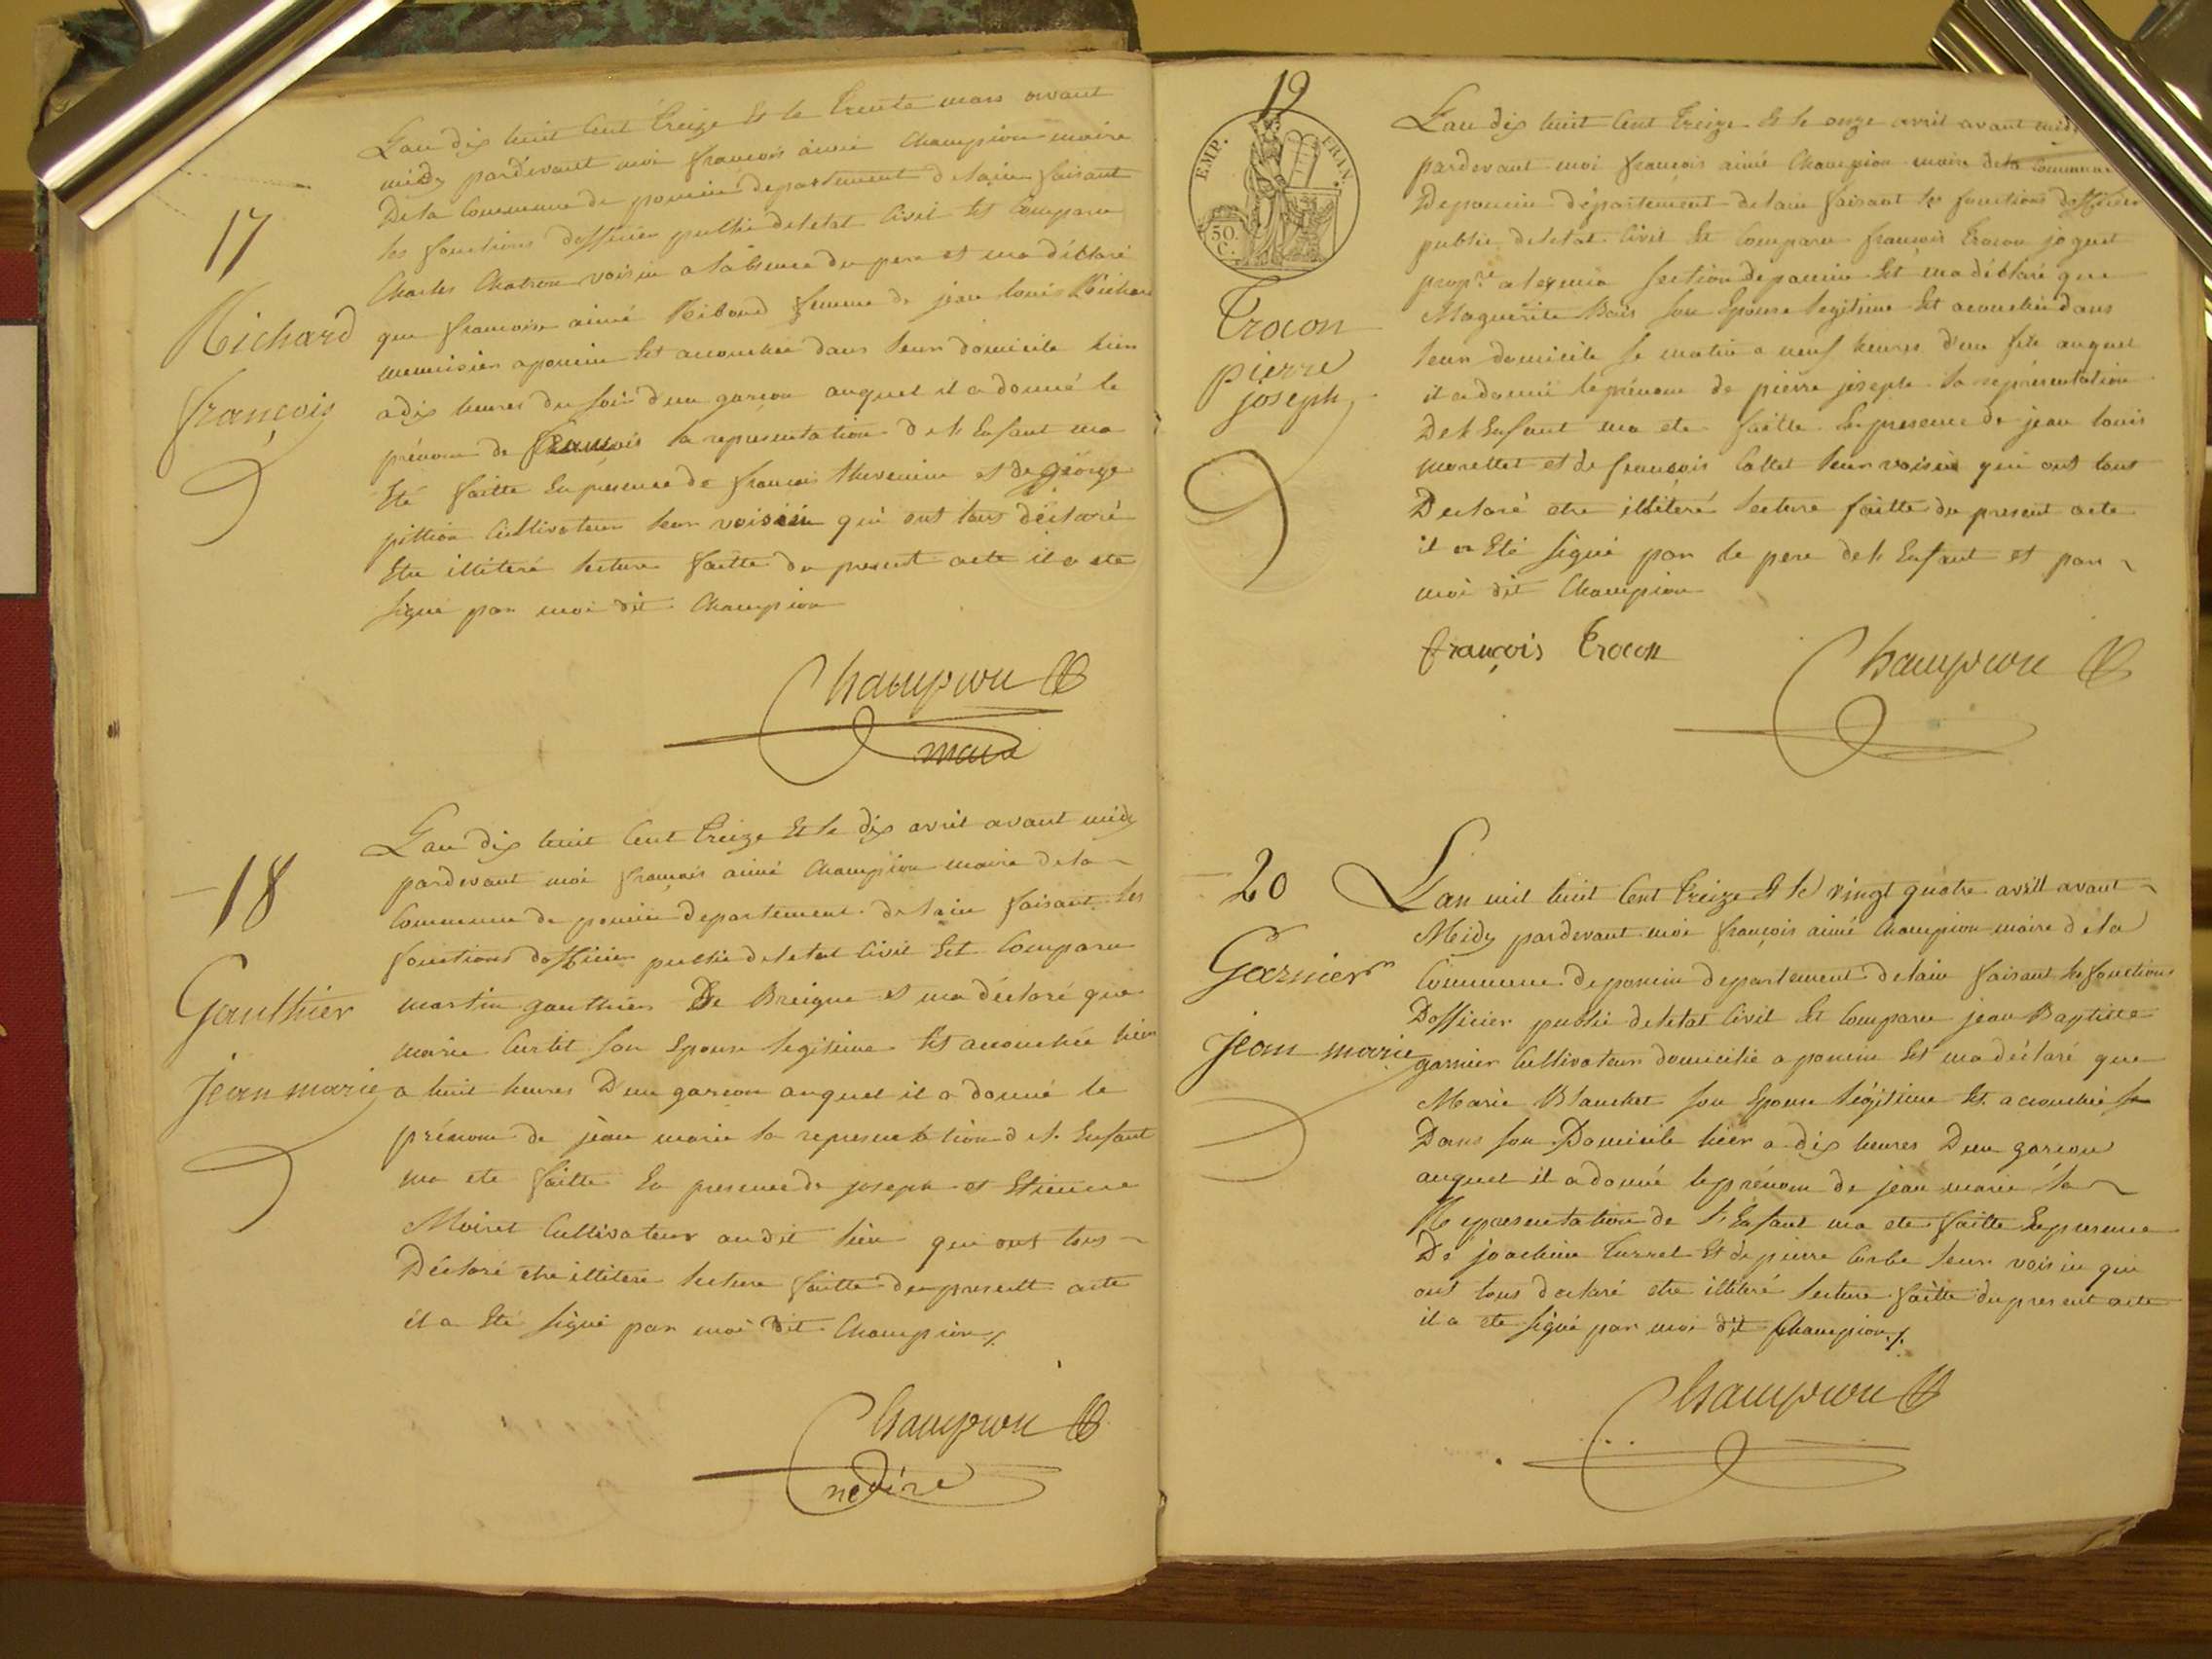 17
Richard
françois
Lan dix huit Cent treize Et le trente mars avant
midy pardevant moi françois aimé Champion maire
Dela Commune de poncin departement delain faisant
les fonctions dofficier public deletat Civil Est Comparu
Charles Chatron voisin a labsence du pere et ma déclaré
que francoise aimé Riboud femme de jean louis Richard
menuisier a poncin Est accouchée dans leur domicile hier
a dix heures du soir d'un garcon auquel il a donné le
prénom de françois la representation de l'Enfant ma
Eté faitte En presence de francois thevenin et de george
pittion Cultivateur leur voisin qui ont tous déclaré
Etre illiteré lecture faitte du present acte il a ete
signé par moi dit Champion
Champion
maire
18
Gauthier
jean marie
Lan dix huit Cent treize Et le dix avril avant midy
pardevant moi françois aimé Champion maire dela
Commune de poncin departement delain faisant les
fonctions dofficier public deletat Civil Est Comparu
martin gauthier De Breigne et ma déclaré que
marie Curtit son Epouse legitime Est accouchée hier
a huit heures D'un garcon auquel il a donné le
prénom de jean marie la representation de l'Enfant
ma ete faitte En presence de joseph et Etienne
Moiret Cultivateur audit lieu qui ont tous
Déclaré etre illiteré lecture faitte du present acte
il a Eté signé par moi dit Champion
Champion
19
EMP. FRAN.
50. C.
Trocon
pierre
joseph
Lan dix huit Cent treize Et le onze avril avant midy
pardevant moi françois aimé Champion maire dela Commune
Deponcin département delain faisant les fonctions dofficier
public deletat Civil Est Comparu francois trocon joguet
propre a section deponcin Est ma déclaré que
Marguerite Bais son Epouse legitime Est acouchée dans
leur domicile le matin a neuf heures d'un fils auquel
il a donné le prénom de pierre joseph la représentation
De l'Enfant ma ete faitte En presence de jean louis
morettet et de francois Collet leur voisin qui ont tous
Declaré etre illiteré lecture faitte du present acte
il a Eté signé par le pere de l'Enfant et par
moi dit Champion
françois Trocon
Champion
20
Garnier
jean marie
Lan mil huit Cent treize Et le vingt quatre avril avant
Midy pardevant moi françois aimé Champion maire dela
Commune deponcin departement delain faisant les fonctions
Dofficier public deletat Civil Est Comparu jean Baptiste
garnier Cultivateur domicilié a poncin Est ma déclaré que
Marie Blanchet son Epouse légitime Est acouchée
Dans son Domicile hier a dix heures D'un garcon
auquel il a donné le prénom de jean marie la
Representation de l'Enfant ma ete faitte En presence
De joachim Curret Et de pierre leur voisin qui
ont tous declaré etre illiteré lecture faitte du present acte
il a ete signé par moi dit Champion
Champion